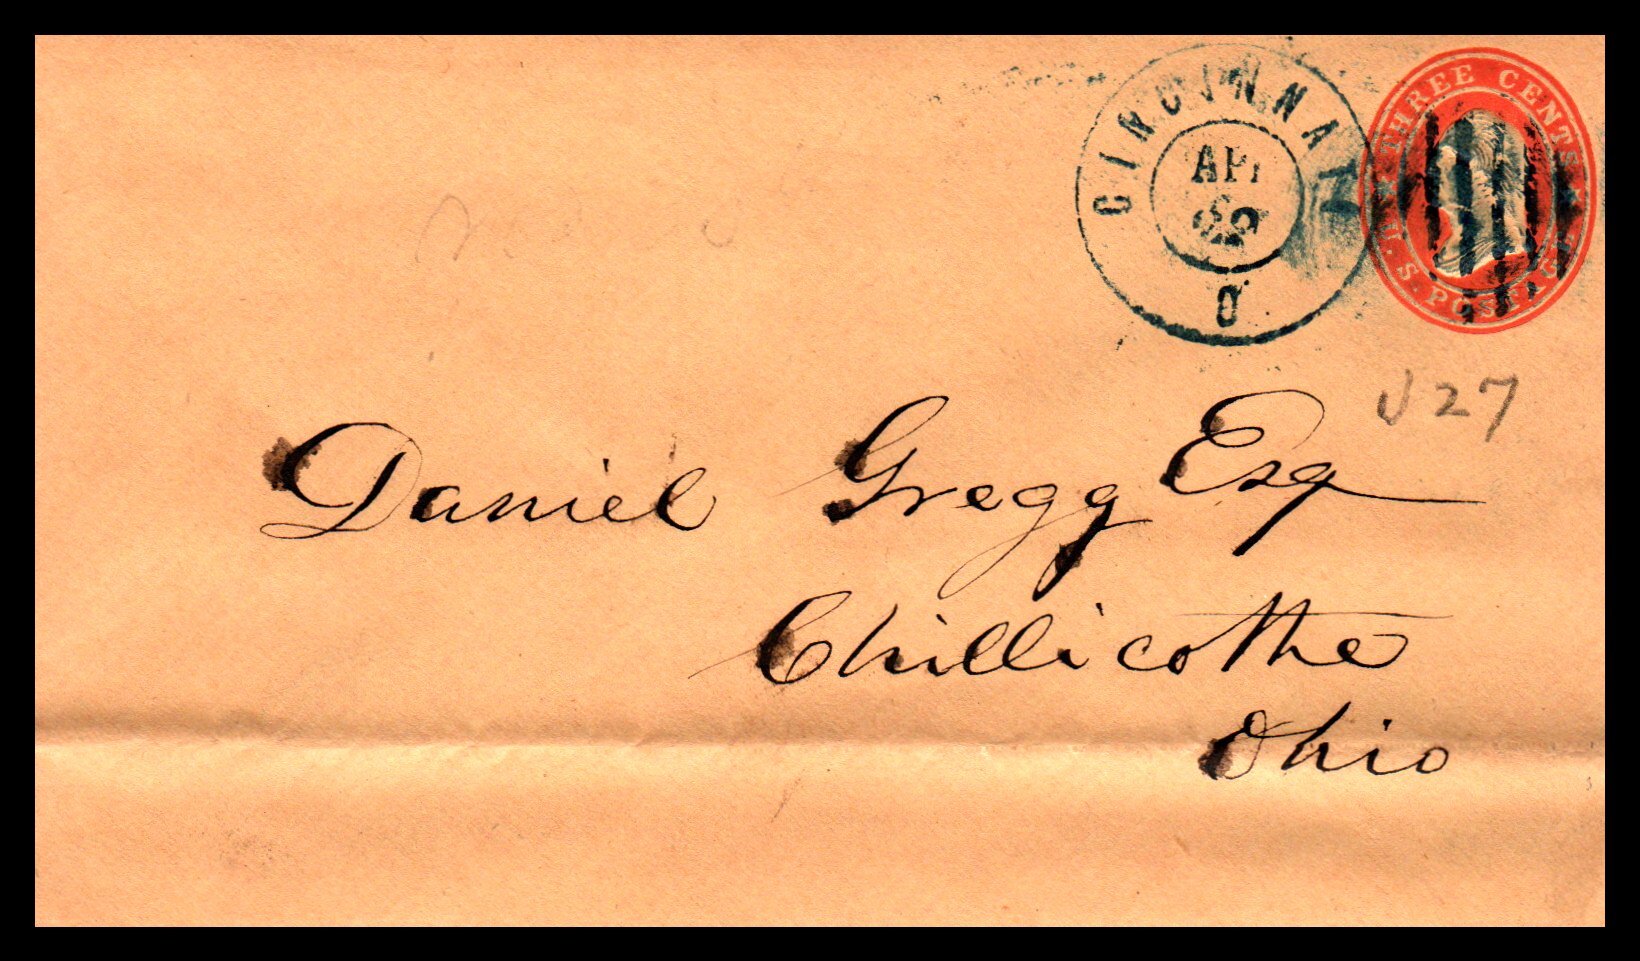 CINCINNATI
AP
O
THREE CENTS
U.S. POSTAGE
U27
Daniel Gregg Esq
Chillicothe
Ohio